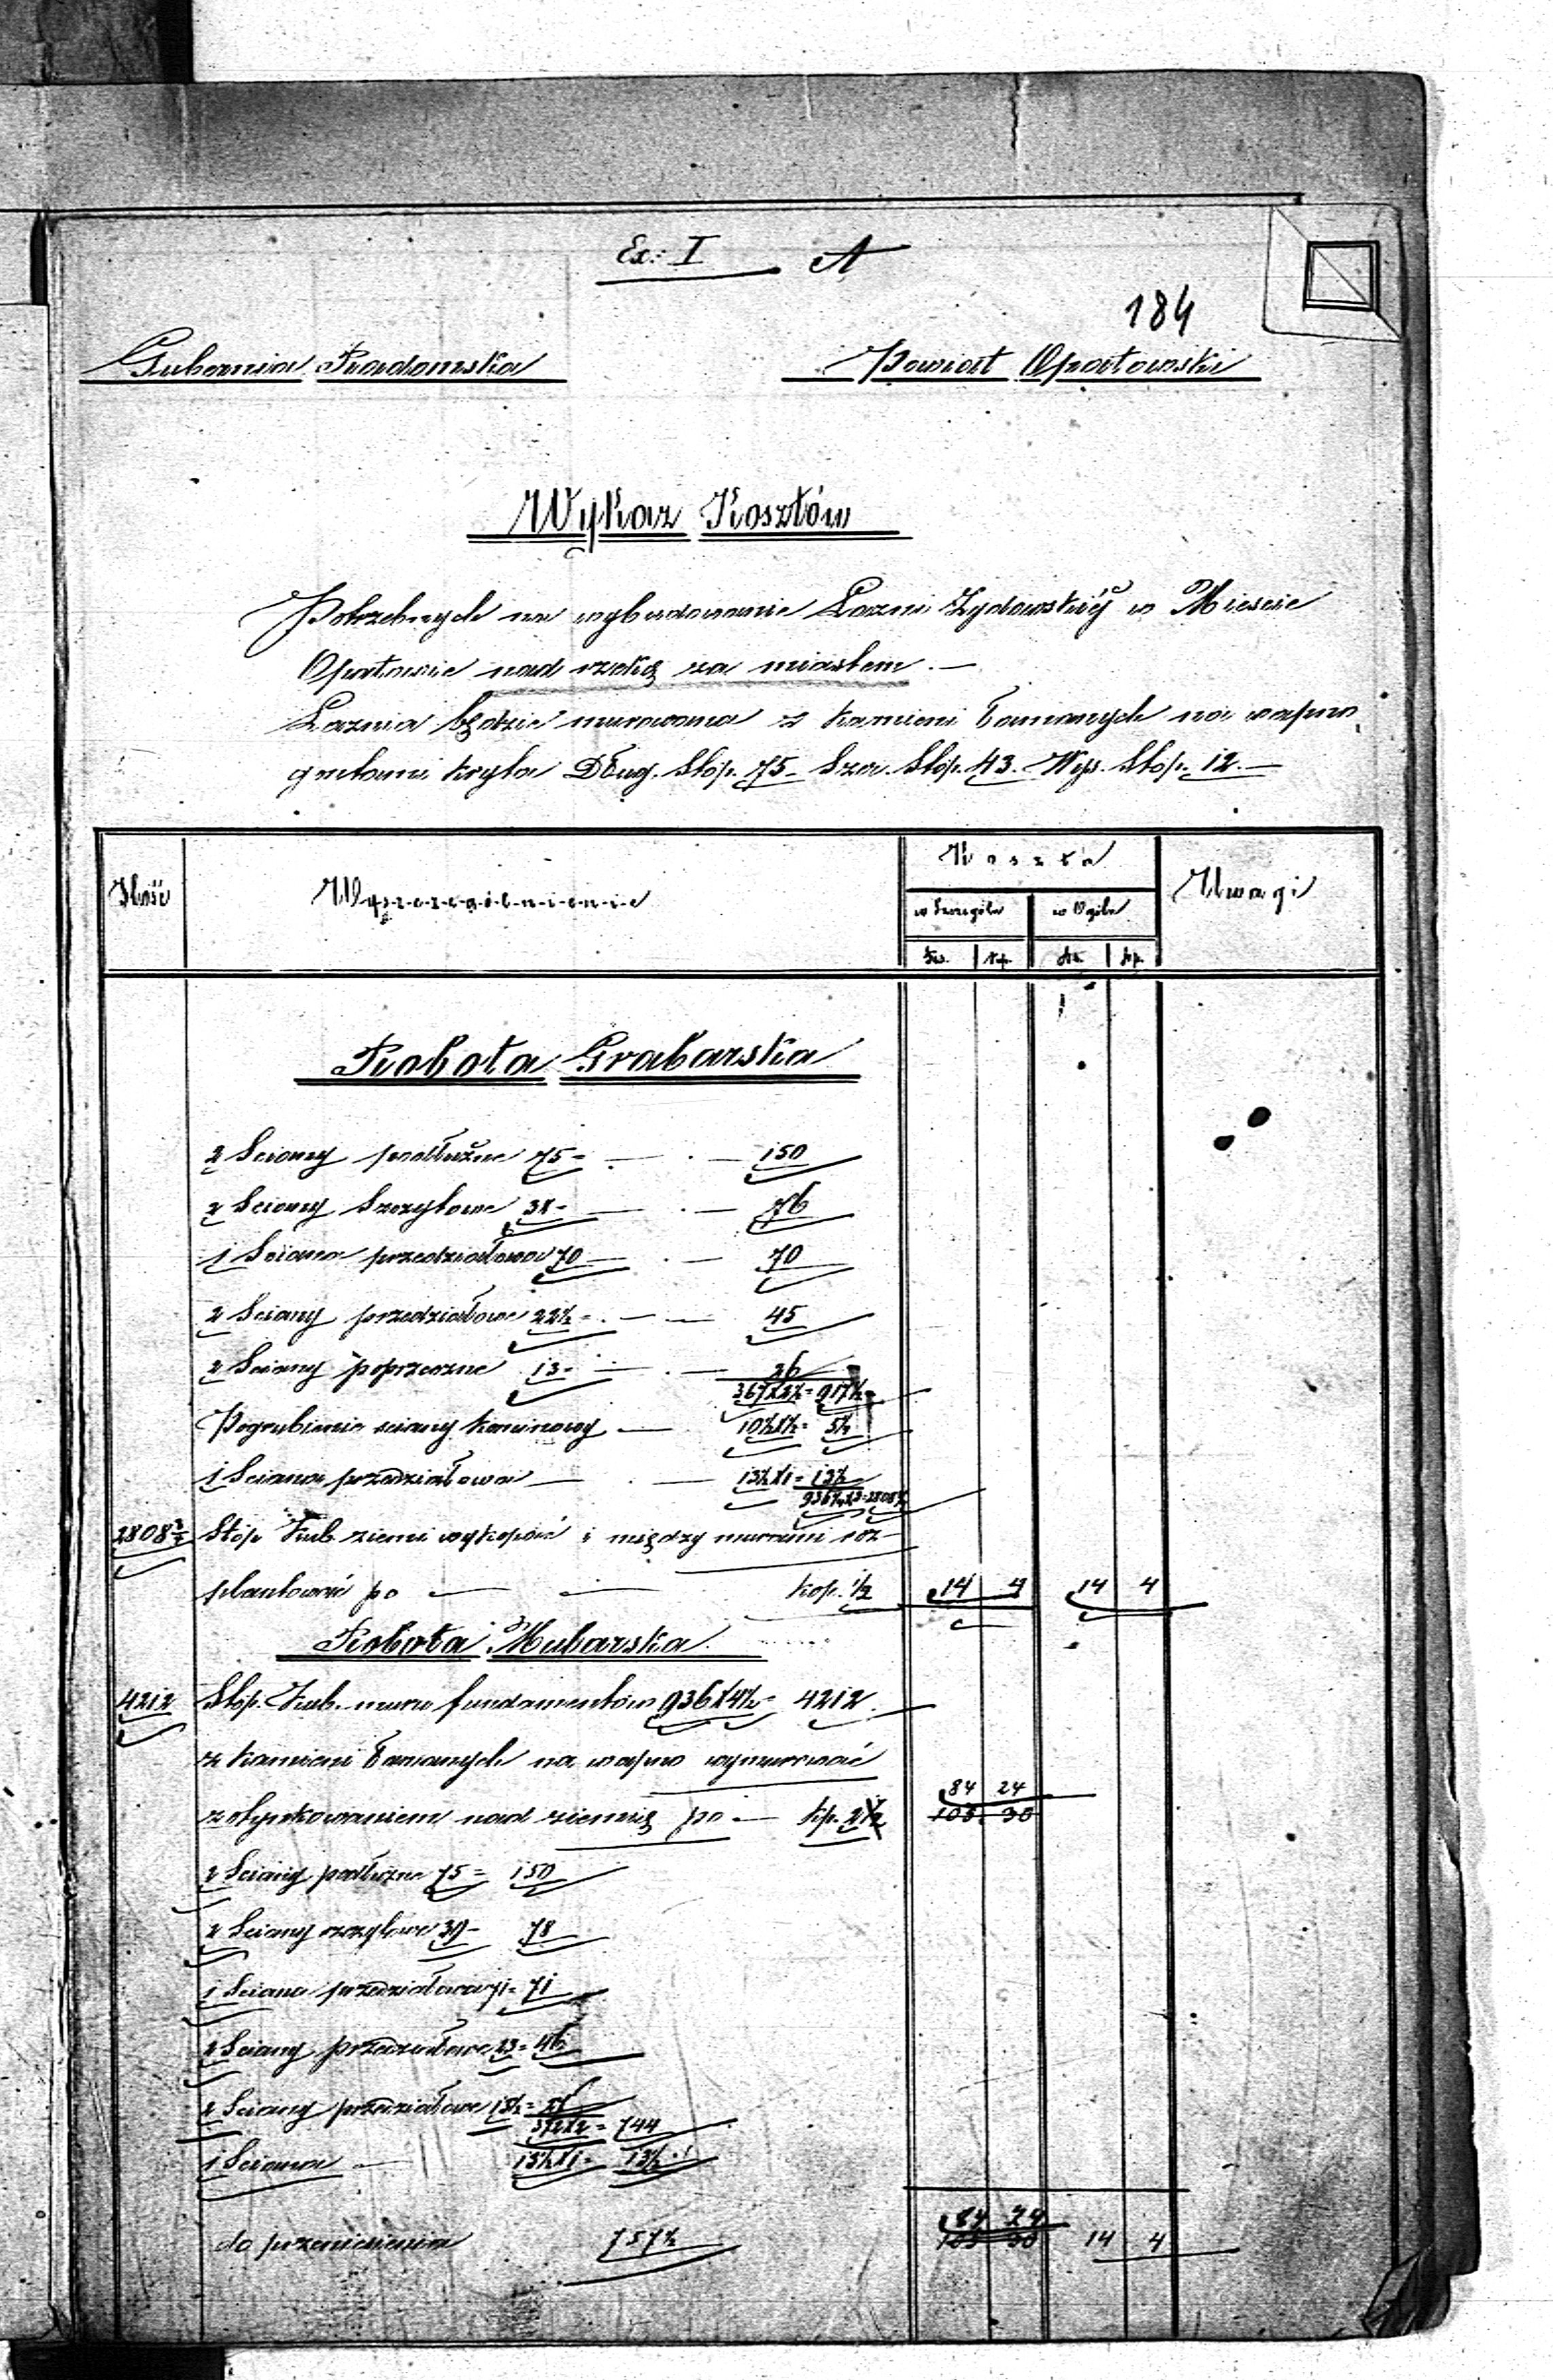 Ex: I A
184
Gubernia Radomska Powiat Opatowski
Wykaz Kosztów
Potrzebnych na wybudowanie Łazni Żydowskiéy w Miescie
Opatowie nad rzeką za miastem. —
Łaznia będzie murowana z kamieni łamanych na wapno,
gontami kryta Dług. Stóp. 75 - Szer. Stóp. 43. Wys. Stóp. 12. —
Ilość Wyszczególnienie Koszta Uwagi
w Szczególe w Ogóle
Rs. Kp. Rs. Kp.
Robota Grabarska
2 Sciany podłużne 75 = 150
2 Sciany Szczytowe 38 - 76
1 Sciana przedziałowa 70 — 70
2 Sciany przedziałowe 22½ = 45
2 Sciany poprzeczne 13 = 26
367X2½ = 917½
Pogrubienie sciany kominowey — 10½X½ = 5¼
1 Sciana przedziałowa — 13½X1 = 13½
936¼X3=2808¾
2808¾ Stóp Kub. ziemi wykopać i między murami roz-
plantować po — kop. ½ 14 4 14 4
Robota Mularska
4212 Stóp. Kub. muru fundamentów 936X4½ = 4212
z kamieni łamanych na wapno wymurować
84 24
z otynkowaniem nad ziemię po — kp. 2½ 105 30
2 Sciany podłużne 75 = 150
2 Sciany szczytowe 39 - 78
1 Sciana przedziałowa 71 = 71
2 Sciany przedziałowe 23 = 46
2 Sciany przedziałowe 13½ = 27
372X2 = 744
1 Sciana — 13½X1 = 13½
84 24
do przeniesienia 757½ 105 30 14 4